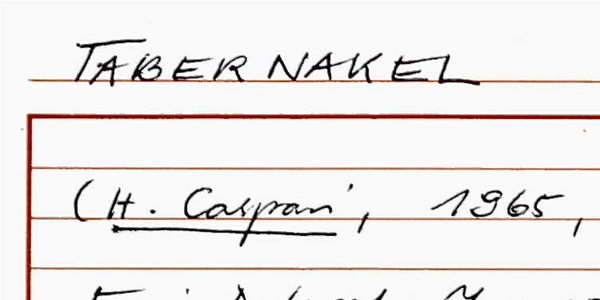 TABERNAKEL
(H. Caspari, 1965,